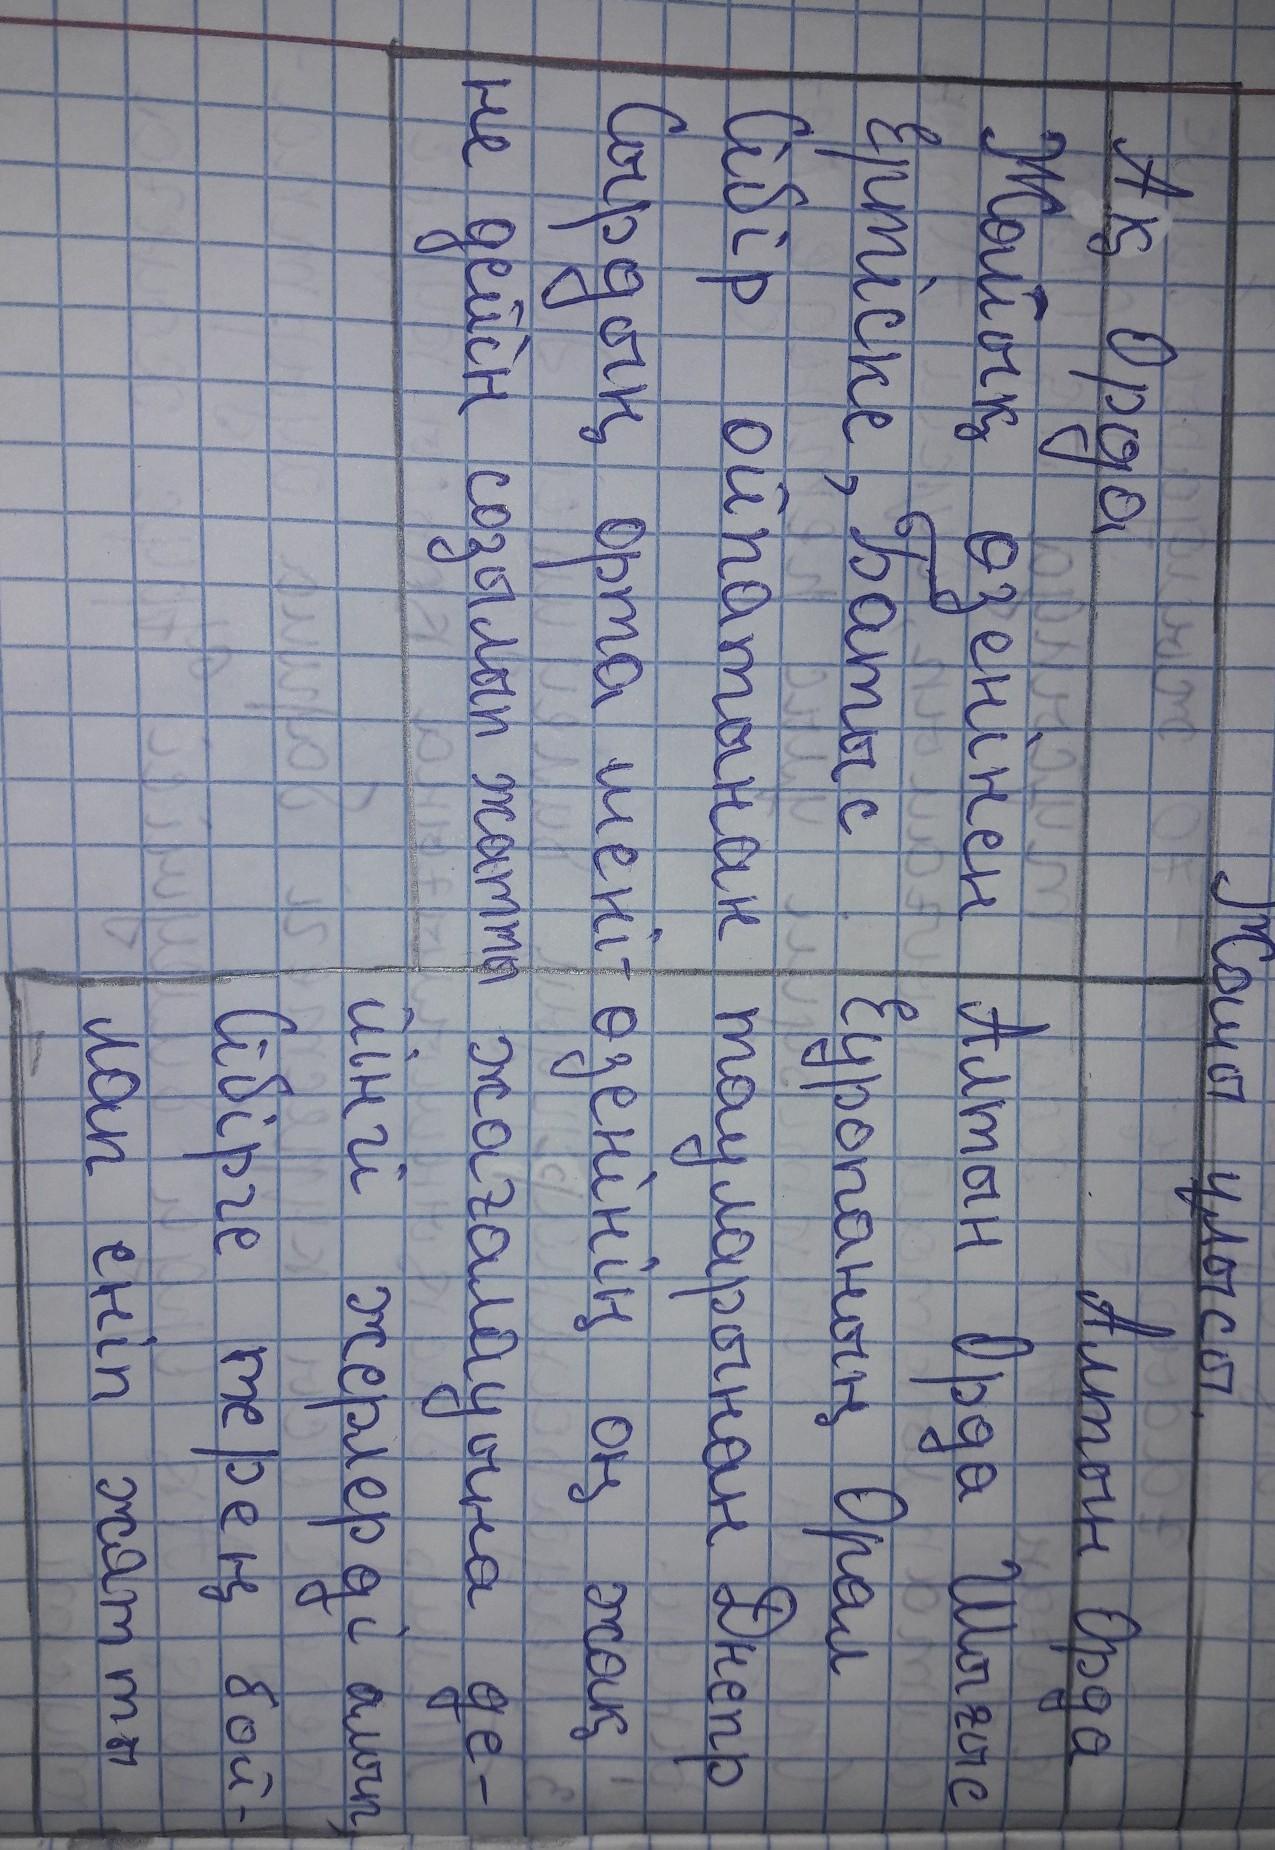 Жошы ұлысы.
Ақ Орда
Жайық өзенінен
Ертіске, Батыс
Сібір ойпатынан
Сырдың орта мені-
не дейін созылып жатты
Алтын Орда
Алтын Орда Шығыс
Еуропаның Орал
тауларынан Днепр
өзенінің оң жақ
жағалауына де-
йінгі жерлерді алып,
Сібірге терең бой-
лап еніп жатты